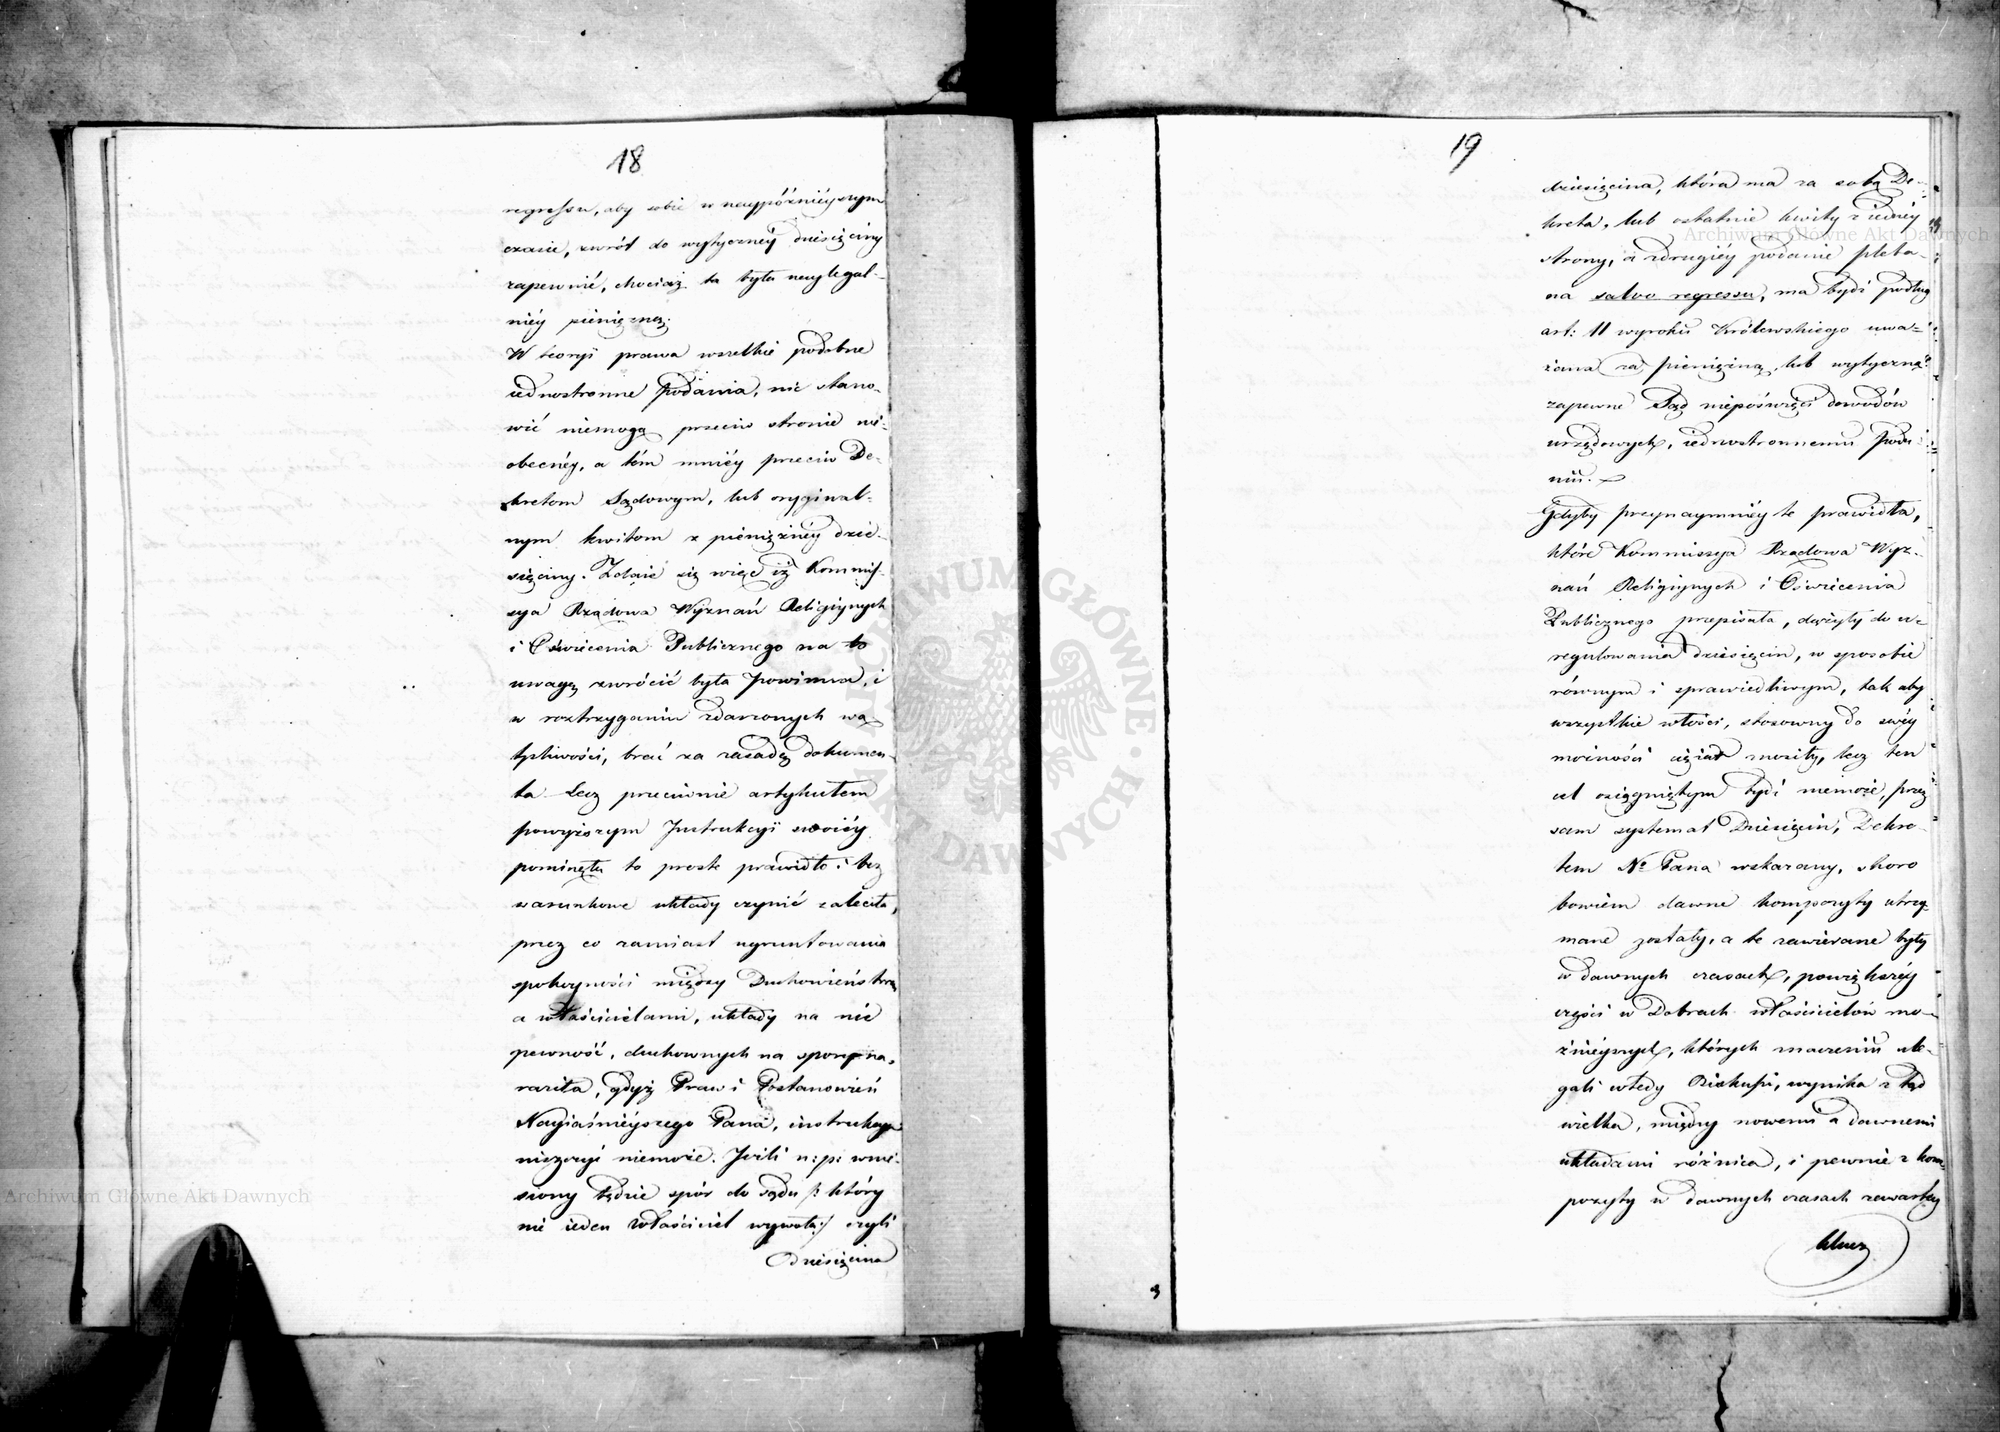 18
regressu, aby sobie w naypóźnieyszym
czasie, zwrót do wytyczney dziesięciny
zapewnić, chociaż ta była naylegal-
niéy pieniężną.
W teoryi prawa wszelkie podobne
iednostronne podania, nic stano-
wić niemogą przeciw stronie nie-
obecnéy, a tém mniéy przeciw De-
kretom Sądowym, lub oryginal-
nym kwitom z pieniężnéy dzie-
sięciny. Zdaie się więc iż Kommis-
sya Rządowa Wyznań Religiynych
i Oświecenia Publicznego na to
uwagę zwrócić była powinna, i
w roztrzyganiu zdarzonych wą
tpliwości, brać za zasadę dokumen-
ta. Lecz przeciwnie artykułem
powyższym Instrukcyi swoiéy
pominęła to proste prawidło i bez
warunkowe układy czynić zaleciła,
przez co zamiast ugruntowania
spokoyności między Duchowieństwem
a właścicielami, układy na nie
pewność, duchownych na spory na-
raziła, gdyż Praw i Postanowień
Nayiaśnieyszego Pana, instrukcya
niszczyć niemoże. Jeżli n:p: wnie-
siony będzie spór do sądu /: który
nie ieden właściciel wywoła:/ czyli
Dziesięcina
19
dziesięcina, która ma za sobą De-
kreta, lub ostatnie kwity z iednéy
strony, a zdrugiéy podanie pleba-
na salvo regressu, ma bydź podług
art: 11 wyroku Królewskiego uwa-
żana za pieniężną, lub wytyczną?
zapewne Sąd niepoświęci dowodów
urzędowych, iednostronnemu poda-
niu.
Gdyby przynaymniéy te prawidła,
które Kommissya Rządowa Wyz-
nań Religiynych i Oświecenia
Publicznego przepisała, dążyły do u-
regulowania dziesięcin, w sposobie
równym i sprawiedliwym, tak aby
wszystkie włości, stosowny do swéy
możności ciężar nosiły, lecz ten
cel osiągniętym bydź niemoże, przez
sam systemat Dziesięcin, Dekre-
tem N° Pana wskazany, skoro
bowiem dawne kompozyty utrzy-
mane zostały, a te zawierane były
w dawnych czasach, powiększéy
części w Dobrach właścicielów mo-
żnieyszych, których znaczeniu ule-
gali wtedy Biskupi, wynika z tąd
wielka, między nowemi a dawnemi
układami różnica, i pewnie z kom-
pozyty w dawnych czasach zawartey
Archiwum Główne Akt Dawnych
Archiwum Główne Akt Dawnych
ARCHIWUM GŁÓWNE AKT DAWNYCH